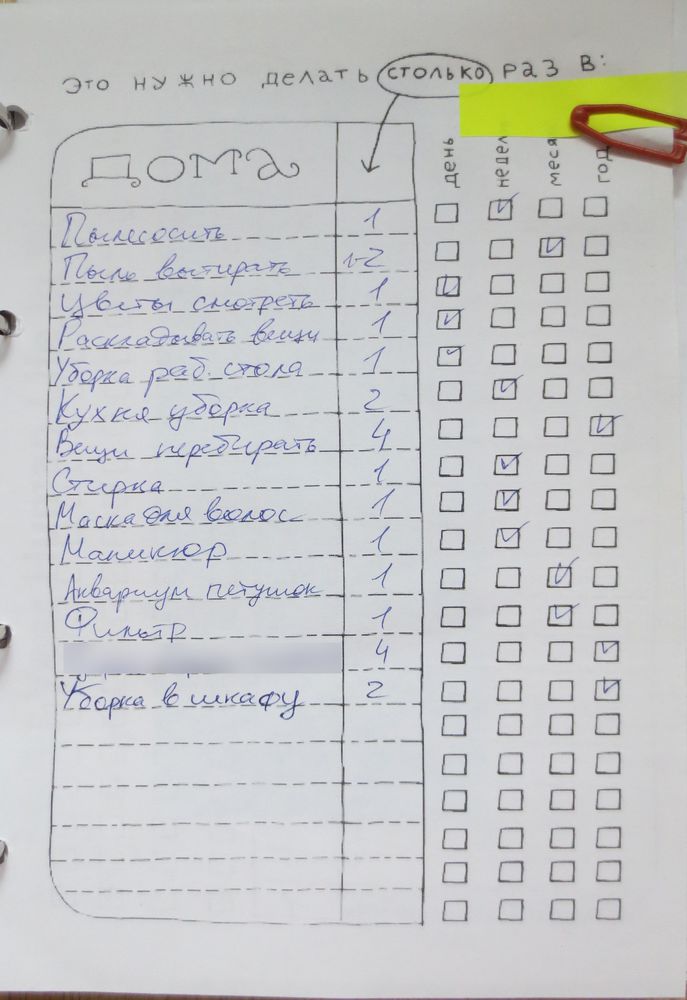 Это нужно делать столько раз в:
Дома
день недел меся год
Пылесосить 1
Пыль вытирать 1-2
Цветы смотреть 1
Раскладывать вещи 1
Уборка раб. стола 1
Кухня уборка 2
Вещи перебирать 4
Стирка 1
Маска для волос 1
Маникюр 1
Аквариум петушок 1
Фильтр 1
4
Уборка в шкафу 2